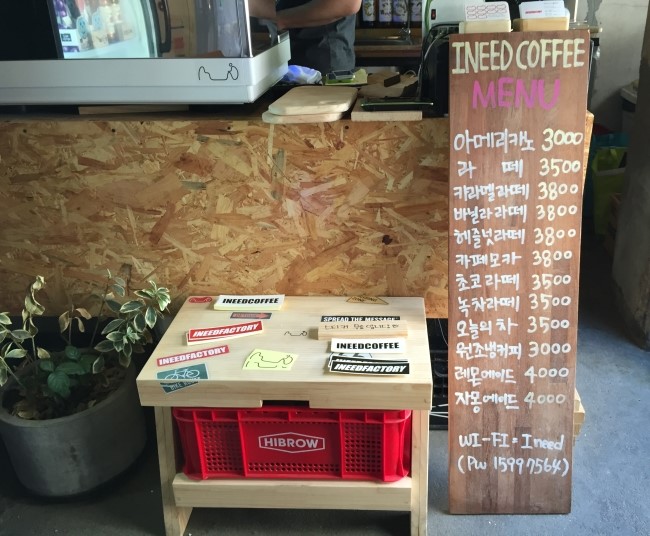 INEED COFFEE
MENU
아메리카노 3000
라 떼 3500
카라멜라떼 3800
바닐라라떼 3800
헤즐넛라떼 3800
카페모카 3800
초코라떼 3500
녹차라떼 3500
오늘의차 3500
원조냉커피 3000
레몬에이드 4000
자몽에이드 4000
WI-FI = Ineed
(PW 15997564)
INEEDCOFFEE
INEEDFACTORY
SPREAD THE MESSAGE
INEEDFACTORY
INEEDCOFFEE
INEEDFACTORY
HIBROW